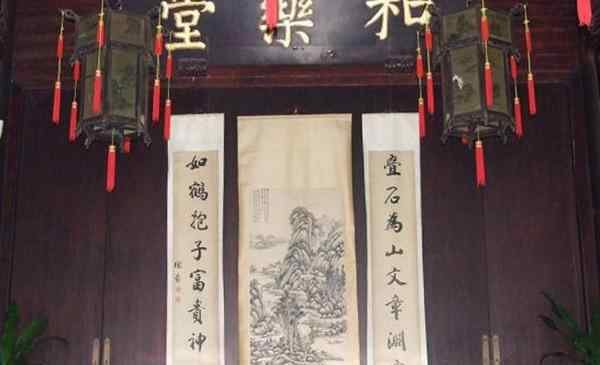 和樂堂
叠石為山文章淵
如鶴抱子富貴神